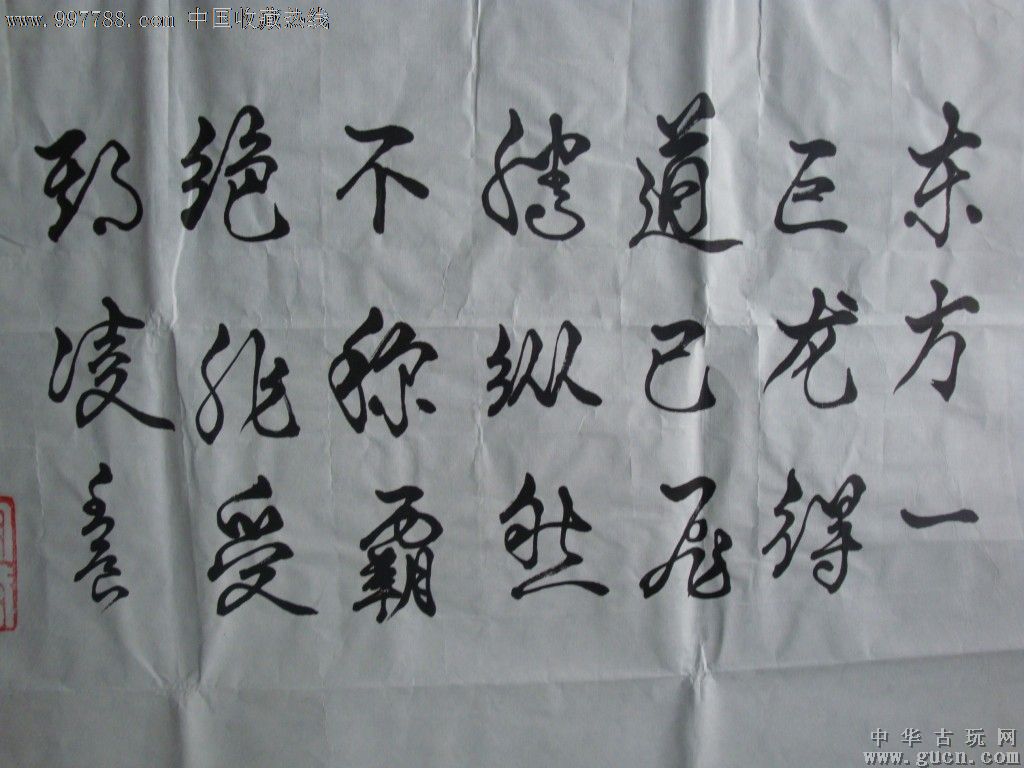 www.997788.com 中国收藏热线
东方一
巨龙得
道已飞
腾纵然
不称霸
绝非受
凌养
中华古玩网
www.gucn.com